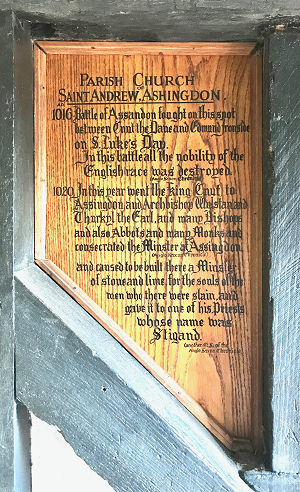 PARISH CHURCH
OF
SAINT ANDREW, ASHINGDON.
AD
1016 Battle of Assandon fought on this spot
between Cnut the Dane and Edmund Ironside
on S. Luke's Day.
In this battle all the nobility of the
English race was destroyed.
(Anglo Saxon Chronicle)
1020 In this year went the king Cnut to
Assingdon and Archbishop Wulstan and
Thurkyl the Earl, and many Bishops
and also Abbots and many Monks and
consecrated the Minster of Assingdon.
(Anglo Saxon Chronicle)
and caused to be built there a Minster
of stone and lime for the souls of the
men who there were slain, and
gave it to one of his Priests
whose name was
Stigand.
(another MS. of the
Anglo Saxon Chronicle)